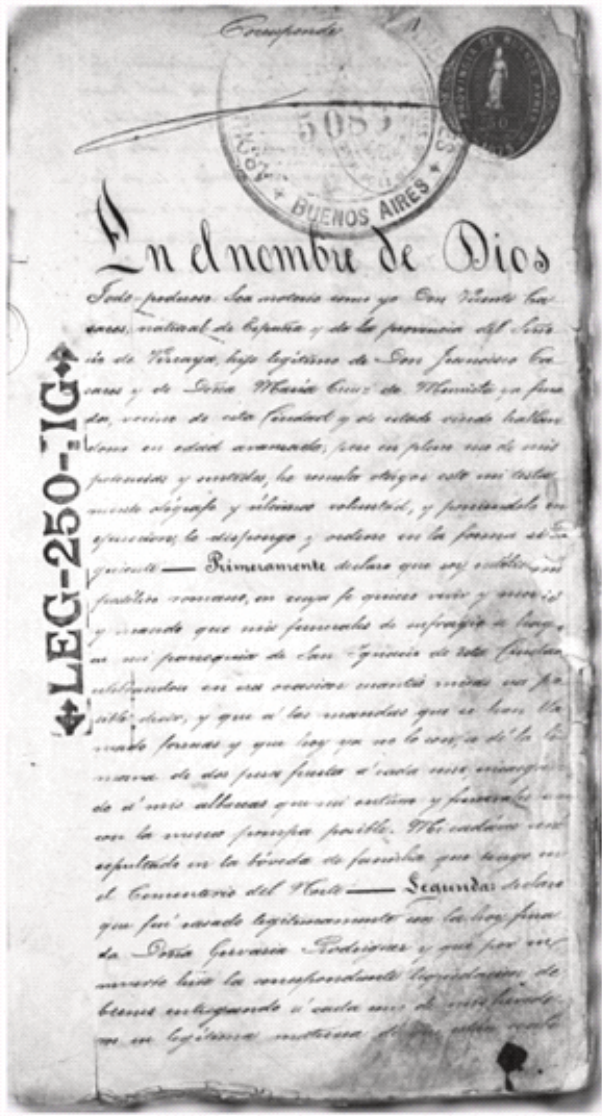 Corresponde
5085
BUENOS AIRES
PROVINCIA DE BUENOS AIRES
LEG-250-JG
En el nombre de Dios
Todo-poderoso Sea notorio como yo Don Vicente Ca-
sares, natural de España y de la provincia del Seño-
río de Vizcaya, hijo legítimo de Don Francisco Ca-
sares y de Doña María Cruz de Murrieta ya fina-
da, vecino de esta Ciudad y de estado viudo hallan-
dome en edad avanzada, pero en pleno uso de mis
potencias y sentidos, he resuelto otorgar este mi testa-
mento ológrafo y última voluntad, y poniendolo en
ejecucion, lo dispongo y ordeno en la forma si-
guiente — Primeramente declaro que soy católico
romano, en cuya fe quiero vivir y morir
y mando que mis funerales de sufragio se hagan
en mi parroquia de San Ygnacio de esta Ciudad
en esa ocasion cuantas misas sea po-
sible decir, y que á las mandas que se han lla-
mado forzosas y que hoy ya no lo son, se dé la li-
mosna de dos pesos fuertes á cada una, encargan-
do á mis albaceas que mi entierro y funerales sean
con la menor pompa posible. Mi cadáver será
sepultado en la bóveda de familia que tengo en
el Cementerio del Norte — Segunda: declaro
que fuí casado legítimamente con la hoy fina-
da Doña Gervasia Rodriguez y que por su
muerte hice la correspondiente liquidacion de
bienes entregando á cada uno de mis herede-
ros su legítima materna